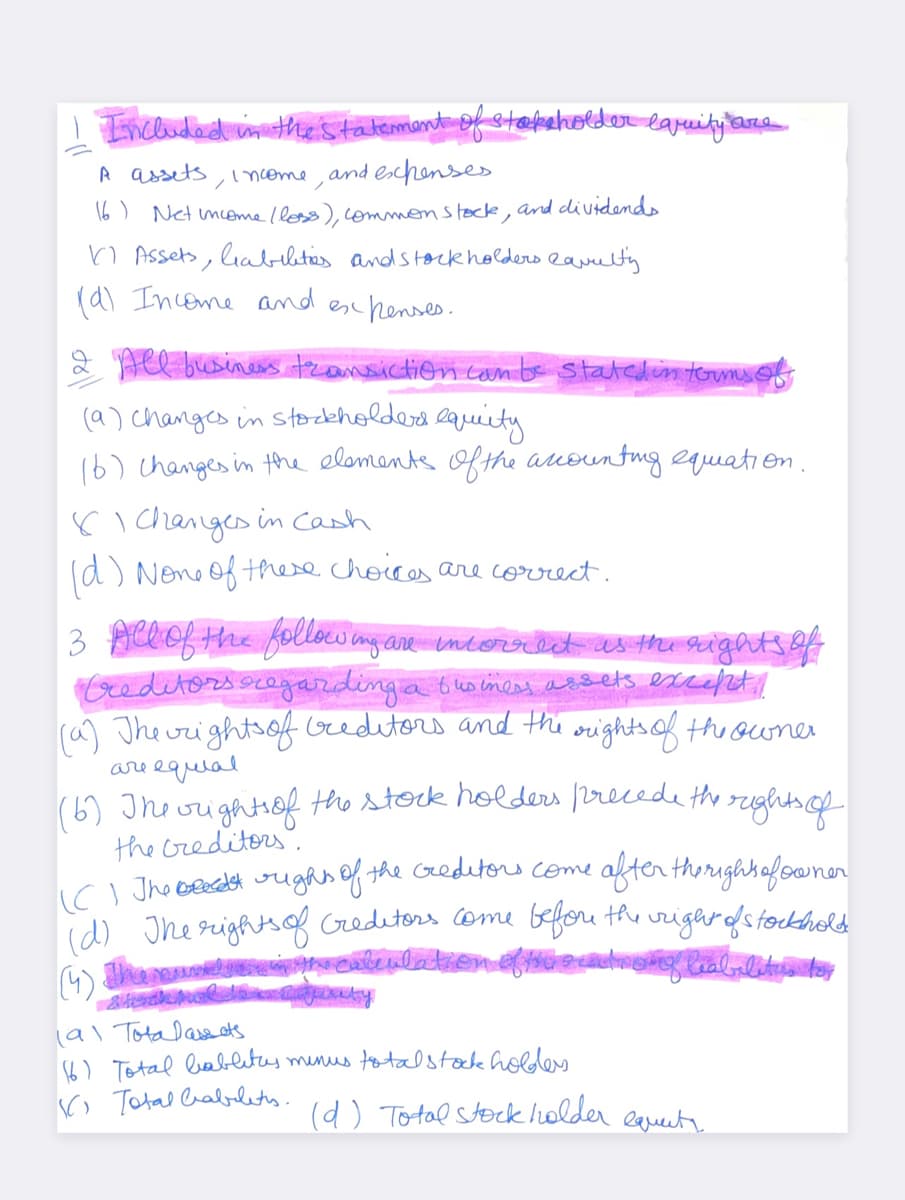 1 Included in the statement of stakeholder equity are
A assets, income, and expenses
(b) Net income (loss), common stock, and dividends
(c) Assets, liabilities and stockholders equity
(d) Income and expenses.
2 All business transiction can be stated in terms of
(a) changes in stockholders equity
(b) changes in the elements of the accounting equation.
(c) Changes in cash
(d) None of these choices are correct.
3 All of the following are incorrect as the rights of
Creditors regarding a business assets except
(a) The rights of creditors and the rights of the owner
are equal
(b) The rights of the stock holders precede the rights of
the creditors.
(c) The rights of the creditors come after the rights of owner
(d) The rights of Creditors come before the right of stockhold
(4) The in the calculation of the ratio of liabilities to
stockholders equity
(a) Total assets
(b) Total liablities minus total stock holders
(c) Total liabilities.
(d) Total stock holder equity